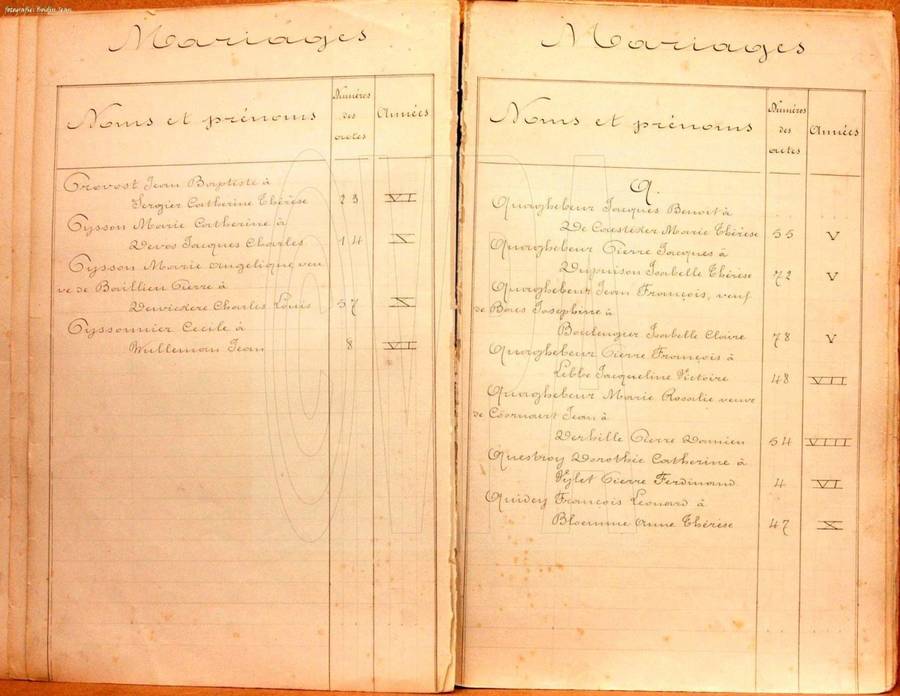 Fotografie: Boidin Jean
Mariages
Noms et prénoms
Numéros
des
actes
Années
Prevost Jean Baptiste à
Sergier Catherine Thérèse 23 VI
Pysson Marie Catherine à
Devos Jacques Charles 14 X
Pysson Marie Angelique, veu
ve de Baillieu Pierre à
Dewickere Charles Louis 57 X
Pyssonnier Cecile à
Wulleman Jean 8 VI
Mariages
Noms et prénoms
Numéros
des
actes
Années
Q.
Quaghebeur Jacques Benoit à
De Coesteker Marie Thérèse 55 V
Quaghebeur Pierre Jacques à
Dupuison Isabelle Thérèse 72 V
Quaghebeur Jean François, veuf
de Josephine à
Boulengier Isabelle Claire 78 V
Quaghebeur Pierre François à
Lebbe Jacqueline Victoire 48 VII
Quaghebeur Marie Rosalie veuve
de Coornaert Jean à
Derhille Pierre Damien 54 VIII
Questroy Dorothée Catherine à
Pierre Ferdinand 4 VI
Quidey François Léonard à
Bloemme Anne Thérèse 47 X